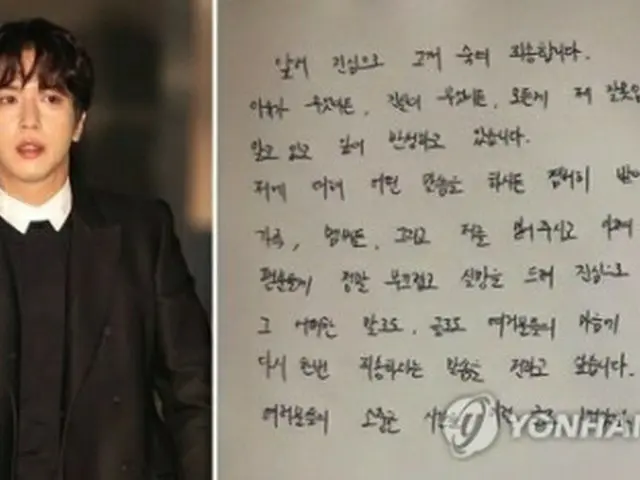 앞서 진심으로 고개 숙여 죄송합니다.
이유가 무엇이든, 무엇이든, 모든게 제 잘못임
알고 있고 깊이 반성하고 있습니다.
저에 대해 어떤 말씀을 하시든 겸허히 받아
가족, 멤버들, 그리고 저를 믿어 주시고 아껴
팬분들께 정말 부끄럽고 실망을 드려 진심으로
그 어떠한 말로도, 글로도 여러분들의 마음이
다시 한번 죄송하다는 말씀을 전하고 싶습니다.
여러분들의 소중한
YONHAP